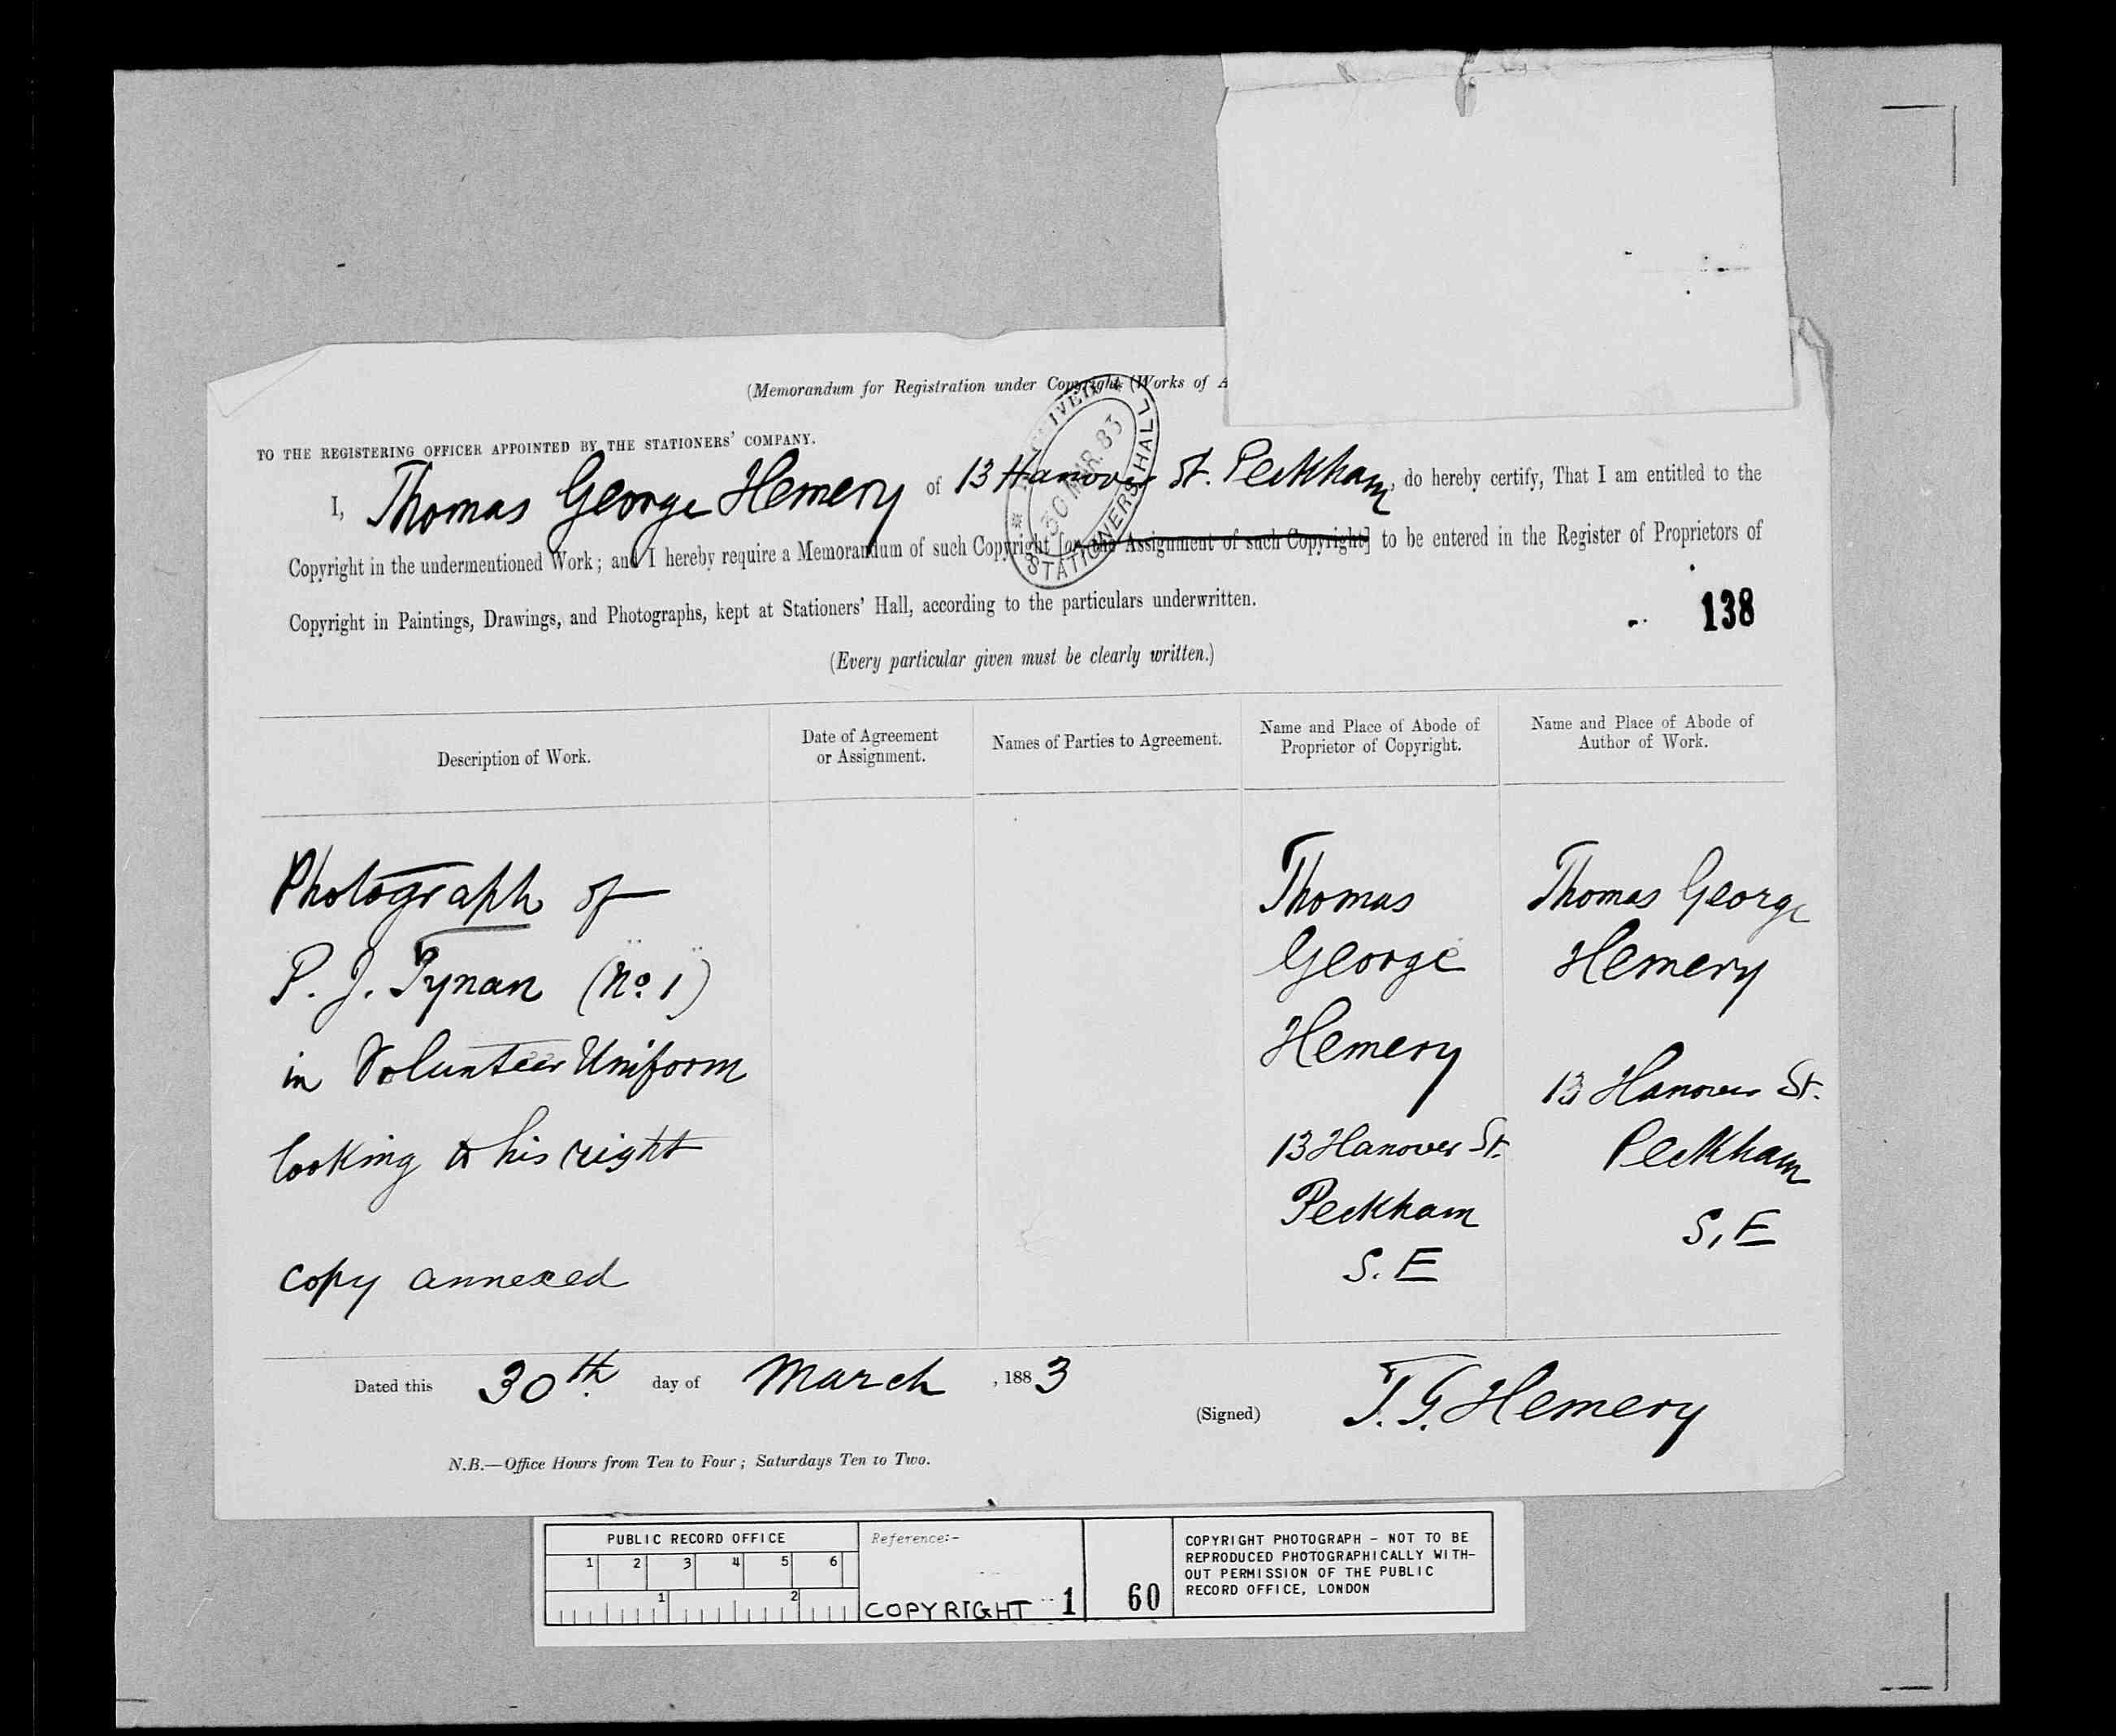 (Memorandum for Registration under Copyright (Works of A
TO THE REGISTERING OFFICER APPOINTED BY THE STATIONERS' COMPANY.
I, Thomas George Hemery of 13 Hanover St. Peckham, do hereby certify, That I am entitled to the
Copyright in the undermentioned Work; and I hereby require a Memorandum of such Copyright [or the Assignment of such Copyright] to be entered in the Register of Proprietors of
Copyright in Paintings, Drawings, and Photographs, kept at Stationers' Hall, according to the particulars underwritten.
RECEIVED
30 MAR. 83
STATIONERS HALL
138
(Every particular given must be clearly written.)
Description of Work.
Date of Agreement
or Assignment.
Names of Parties to Agreement.
Name and Place of Abode of
Proprietor of Copyright.
Name and Place of Abode of
Author of Work.
Photograph of
P. J. Tynan (No. 1)
in Volunteer Uniform
looking to his right
copy annexed
Thomas
George
Hemery
13 Hanover St.
Peckham
S. E
Thomas George
Hemery
13 Hanover St.
Peckham
S. E
Dated this 30th day of March, 1883
(Signed) T. G. Hemery
N.B.—Office Hours from Ten to Four; Saturdays Ten to Two.
PUBLIC RECORD OFFICE
1 2 3 4 5 6
1 2
Reference:-
COPYRIGHT 1 60
COPYRIGHT PHOTOGRAPH - NOT TO BE
REPRODUCED PHOTOGRAPHICALLY WITH-
OUT PERMISSION OF THE PUBLIC
RECORD OFFICE, LONDON